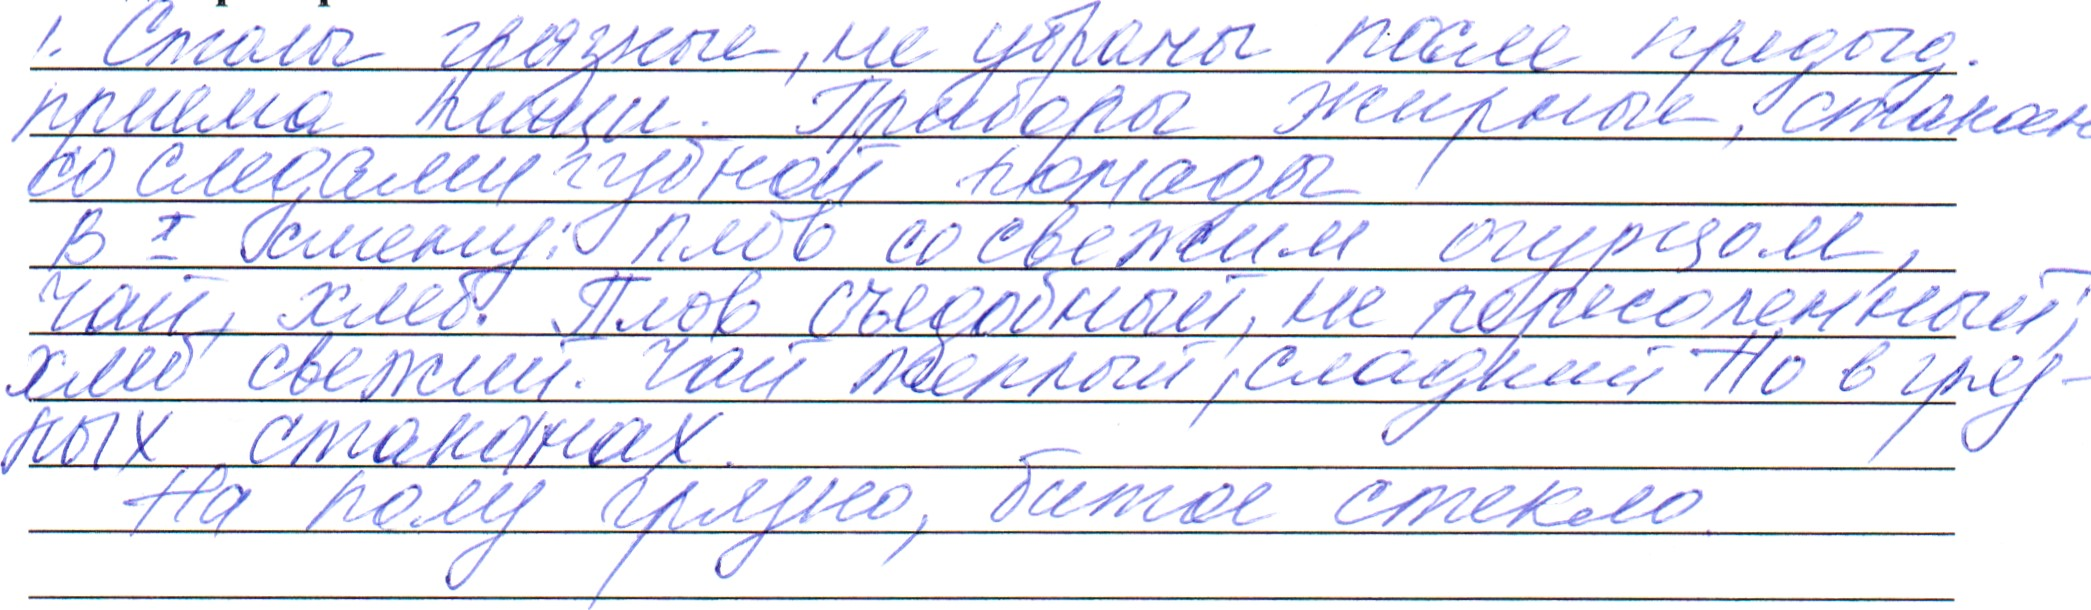 1. Столы грязные, не убраны после предыд.
приема пищи. Приборы жирные, стакан
со следами губной помады
В I смену: плов со свежим огурцом,
чай, хлеб. Плов съедобный, не пересоленный,
хлеб свежий. Чай теплый, сладкий Но в гряз-
ных стаканах.
На полу грязно, битое стекло